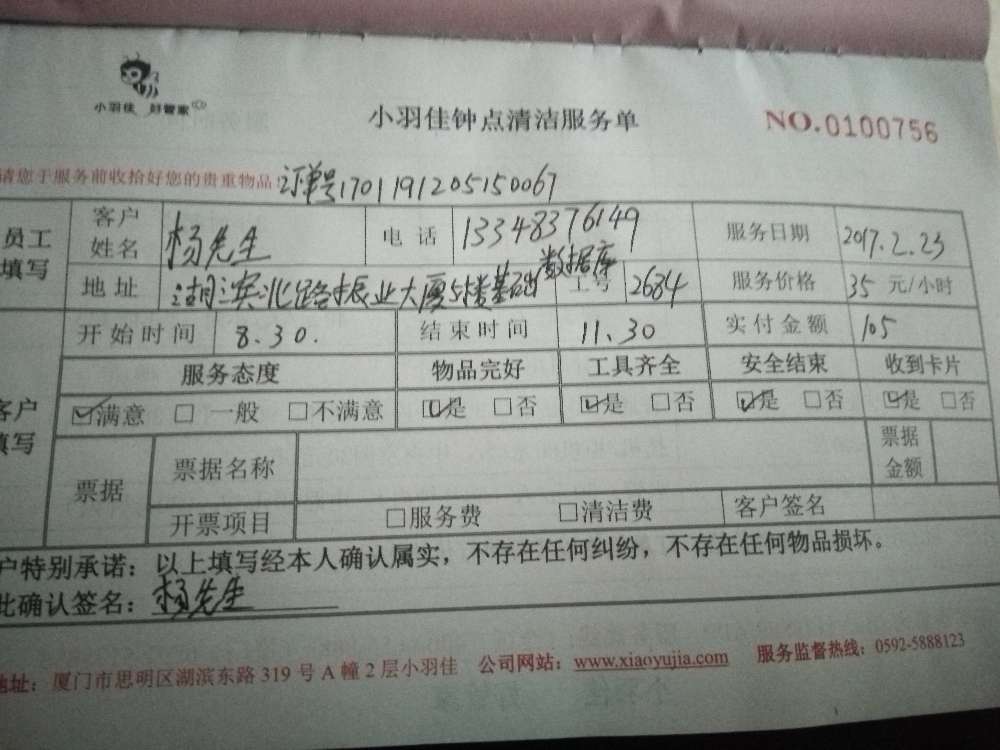 小羽佳 好管家
小羽佳钟点清洁服务单
NO.0100756
请您于服务前收拾好您的贵重物品! 订单号1701191205150067
员工填写 客户姓名 杨先生 电话 13348376149 服务日期 2017.2.23
地址 湖滨北路振业大厦5楼基础数据库 工号 2684 服务价格 35 元/小时
开始时间 8.30. 结束时间 11.30 实付金额 105
客户填写 服务态度 物品完好 工具齐全 安全结束 收到卡片
☑满意 □一般 □不满意 ☑是 □否 ☑是 □否 ☑是 □否 ☑是 □否
票据 票据名称 票据金额
开票项目 □服务费 □清洁费 客户签名
户特别承诺：以上填写经本人确认属实，不存在任何纠纷，不存在任何物品损坏。
此确认签名：杨先生
地址：厦门市思明区湖滨东路319号A幢2层小羽佳 公司网站：www.xiaoyujia.com 服务监督热线：0592-5888123